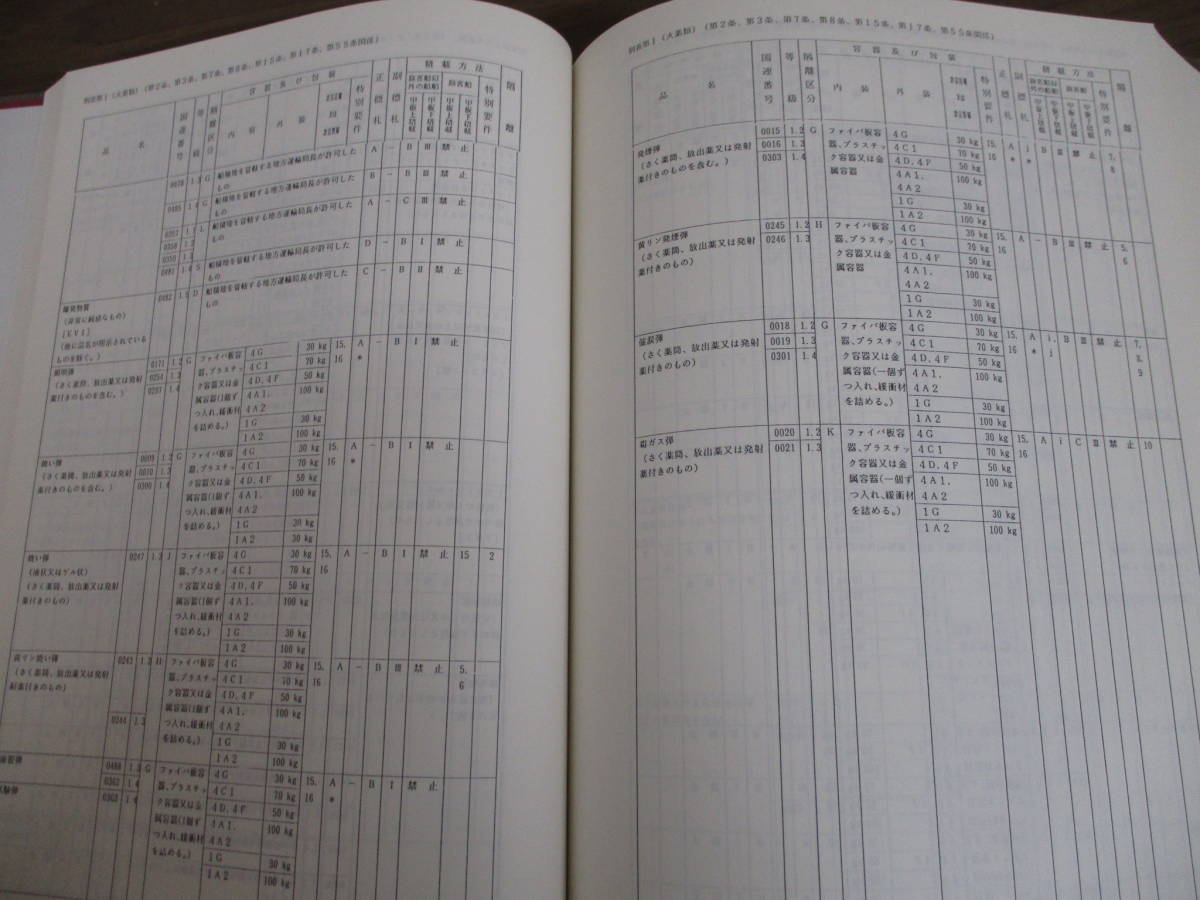 別表第1(火薬類)(第2条、第3条、第7条、第8条、第15条、第17条、第55条関係)
品 名
国連番号
等級
隔離区分
容器及び包装
内装
外装
特別要件
正標札
副標札
積載方法
旅客船以外の船舶
旅客船
甲板上積載
甲板下積載
甲板上積載
甲板下積載
特別要件
隔離
0478 1.3 G 船積地を管轄する地方運輸局長が許可した A - B Ⅲ 禁止
もの
0485 1.4 G 船積地を管轄する地方運輸局長が許可した B - B Ⅲ 禁止
もの
0357 1.1 L 船積地を管轄する地方運輸局長が許可した A - C Ⅲ 禁止
0358 1.2 もの
0359 1.3
0481 1.4 S 船積地を管轄する地方運輸局長が許可した D - B Ⅰ 禁止
もの
0482 1.5 D 船積地を管轄する地方運輸局長が許可した C - B Ⅱ 禁止
もの
爆発物質
(非常に鈍感なもの)
[EVI]
(他に品名が明示されている
ものを除く。)
照明弾 0171 1.2 G ファイバ板容 4G 30 kg 15. A - B Ⅰ 禁止
(さく薬筒、放出薬又は発射 0254 1.3 器、プラスチッ 4C1 70 kg 16 *
薬付きのものを含む。) 0297 1.4 ク容器又は金 4D,4F 50 kg
属容器(1個ず 4A1, 100 kg
つ入れ、緩衝材 4A2
を詰める。) 1G 30 kg
1A2 100 kg
焼い弾 0009 1.2 G ファイバ板容 4G 30 kg 15. A - B Ⅰ 禁止
(さく薬筒、放出薬又は発射 0010 1.3 器、プラスチッ 4C1 70 kg 16 *
薬付きのものを含む。) 0300 1.4 ク容器又は金 4D,4F 50 kg
属容器(1個ず 4A1, 100 kg
つ入れ、緩衝材 4A2
を詰める。) 1G 30 kg
1A2 30 kg
焼い弾 0247 1.3 J ファイバ板容 4G 30 kg 15. A - B Ⅰ 禁止 15 2
(液状又はゲル状) 器、プラスチッ 4C1 70 kg 16
(さく薬筒、放出薬又は発射 ク容器又は金 4D,4F 50 kg
薬付きのもの) 属容器(1個ず 4A1, 100 kg
つ入れ、緩衝材 4A2
を詰める。) 1G 30 kg
1A2 100 kg
黄リン焼い弾 0243 1.2 H ファイバ板容 4G 30 kg 15. A - B Ⅲ 禁止 5.
(さく薬筒、放出薬又は発射 器、プラスチッ 4C1 70 kg 16 6
薬付きのもの) ク容器又は金 4D,4F 50 kg
属容器(1個ず 4A1, 100 kg
0244 1.3 つ入れ、緩衝材 4A2
を詰める。) 1G 30 kg
1A2 100 kg
0488 1.3 G ファイバ板容 4G 30 kg 15. A - B Ⅰ 禁止
験弾 0362 1.4 器、プラスチッ 4C1 70 kg 16 *
0363 1.4 ク容器又は金 4D,4F 50 kg
属容器(1個ず 4A1, 100 kg
つ入れ、緩衝材 4A2
を詰める。) 1G 30 kg
1A2 100 kg
別表第1(火薬類)(第2条、第3条、第7条、第8条、第15条、第17条、第55条関係)
品 名
国連番号
等級
隔離区分
容器及び包装
内装
外装
特別要件
正標札
副標札
積載方法
旅客船以外の船舶
旅客船
甲板上積載
甲板下積載
甲板上積載
甲板下積載
特別要件
隔離
発煙弾 0015 1.2 G ファイバ板容 4G 30 kg 15. A j B Ⅲ 禁止 7.
(さく薬筒、放出薬又は発射 0016 1.3 器、プラスチッ 4C1 70 kg 16 * * 8
薬付きのものを含む。) 0303 1.4 ク容器又は金 4D,4F 50 kg
属容器 4A1, 100 kg
4A2
1G 30 kg
1A2 100 kg
黄リン発煙弾 0245 1.2 H ファイバ板容 4G 30 kg 15. A - B Ⅲ 禁止 5.
(さく薬筒、放出薬又は発射 0246 1.3 器、プラスチッ 4C1 70 kg 16 6
薬付きのもの) ク容器又は金 4D,4F 50 kg
属容器 4A1, 100 kg
4A2
1G 30 kg
1A2 100 kg
催涙弾 0018 1.2 G ファイバ板容 4G 30 kg 15. A i B Ⅲ 禁止 7.
(さく薬筒、放出薬又は発射 0019 1.3 器、プラスチッ 4C1 70 kg 16 * j 8.
薬付きのもの) 0301 1.4 ク容器又は金 4D,4F 50 kg 9
属容器(一個ず 4A1, 100 kg
つ入れ、緩衝材 4A2
を詰める。) 1G 30 kg
1A2 100 kg
毒ガス弾 0020 1.2 K ファイバ板容 4G 30 kg 15. A i C Ⅲ 禁止 10
(さく薬筒、放出薬又は発射 0021 1.3 器、プラスチッ 4C1 70 kg 16
薬付きのもの) ク容器又は金 4D,4F 50 kg
属容器(一個ず 4A1, 100 kg
つ入れ、緩衝材 4A2
を詰める。) 1G 30 kg
1A2 100 kg